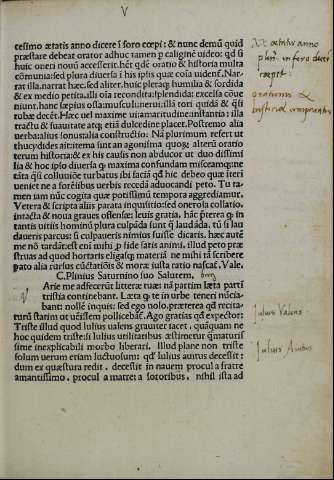 V
cesimo ætatis anno dicere ī foro cœpi: & nunc demū quid
præstare debeat orator adhuc tamen p caliginē uideo: qđ si
huic oneri nouū accesserit. hēt qdē oratio & historia multa
cōmunia: sed plura diuersa ī his ipsis quæ coīa uident̃. Nar-
rat illa. narrat hæc. sed aliter. huic pleraq; humilia & sordida
& ex medio petita. illi oīa recondita: splendida: excelsa cōue
niunt. hanc sæpius ossa: musculi: nerui: illā tori quidā & q̄si
iubæ decēt. Hæc uel maxime ui: amaritudine: instantia: illa
tractu & suauitate atq; etiā dulcedine placet. Postremo alia
uerba: alius sonus: alia constructio: Nā plurimum refert ut
thucydides ait: κτημα sint an αγονισμα quoꝝ alterū oratio
terum historia: & ex his causis non adducor ut duo dissimi
lia & hoc ipso diuersa q; maxima confundam misceamq;: ne
tāta q̄si colluuiōe turbatus ibi faciā qđ hic debeo quæ iteri
ueniet ne a forēsibus uerbis recedā aduocandi peto. Tu ta-
men iam nūc cogita quæ potissimū tempora aggrediamur.
Vetera & scripta aliis parata inquisitio: sed onerosa collatio.
intacta & noua graues offensæ: leuis gratia. hāc p̄terea q; in
tantis uitiis hominū plura culpāda sunt q̄ laudāda. tū si lau
daueris parcus: si culpaueris nimius fuisse dicaris. hæc autē
me nō tardāt: est enī mihi p fide satis animi. illud peto præ
struas ad quod hortaris eligasq; materiā ne mihi tā scribere
pato alia rursus cūctatiōis & moræ iusta ratio nascat̃. Vale.
C. Plinius Saturnino suo Salutem.
Arie me adfecerūt litteræ tuæ: nā partim læta partī
tristia continebant. Læta q; te in urbe teneri nūcia-
bant: nollē inquis: sed ego uolo. præterea qđ recita-
turū statim ut uēissem pollicebāt̃. Ago gratias qđ expector:
Triste illud quod Iulius ualens grauiter iacet, quāquam ne
hoc quidem triste: si Iulius utilitatibus æstimetur q̄maturissi
sime inexplicabili morbo liberari. Illud plane non triste
solum uerum etiam luctuosum: qđ Iulius auitus decessit:
dum ex quæstura redit. decessit in nauem procul a fratre
amantissimo, procul a matre: a sororibus, nihil ista ad
oratorius &
Iulius Valens
Iulius Auitus